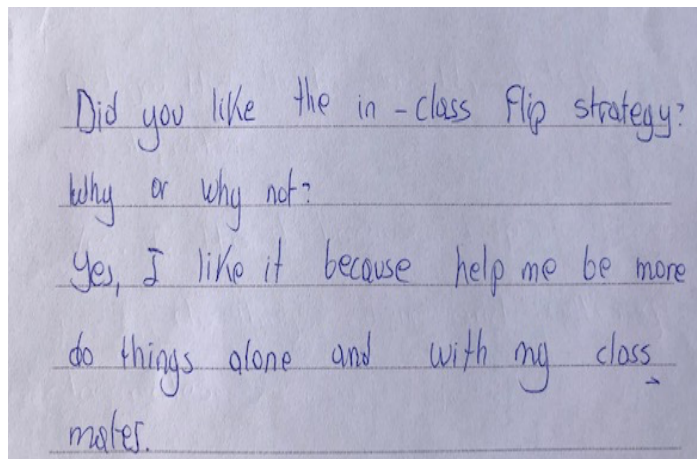 Did you like the in-class flip strategy?
Why or why not?
Yes, I like it because help me be more
do things alone and with my class
mates.